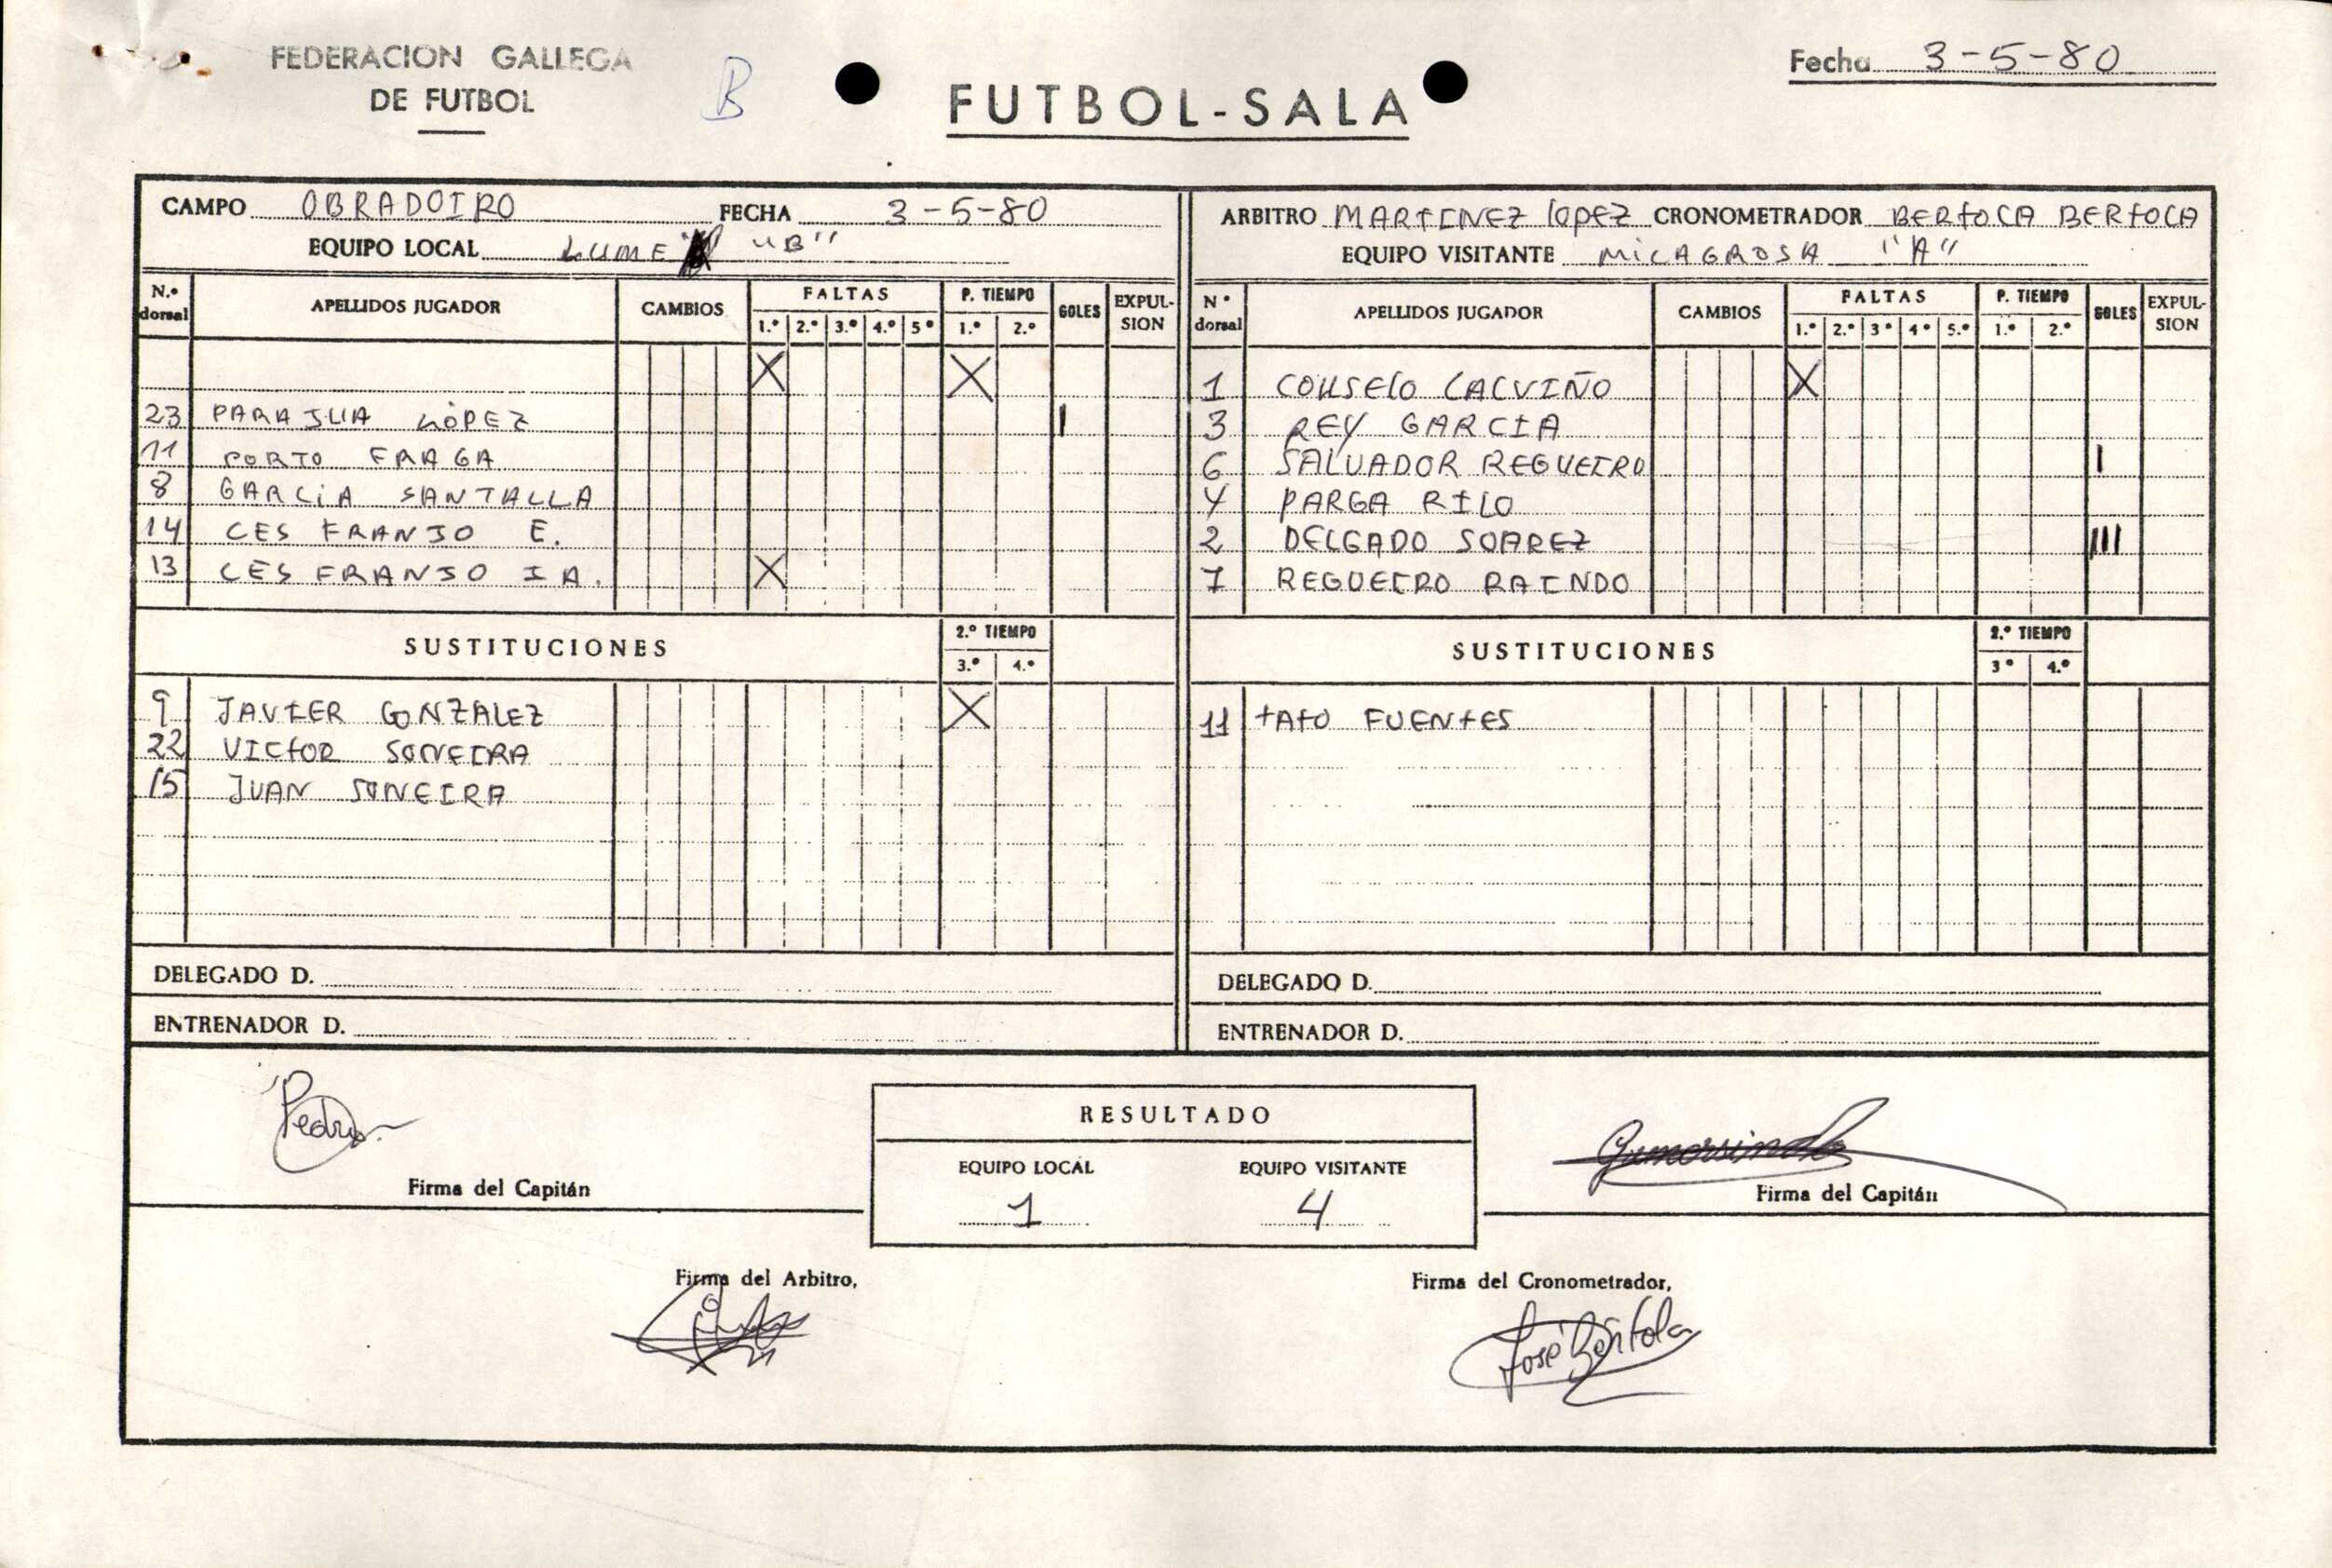 FEDERACION GALLEGA
DE FUTBOL
B
FUTBOL-SALA
Fecha 3-5-80
CAMPO OBRADOIRO FECHA 3-5-80
EQUIPO LOCAL LUME "B"
ARBITRO MARTINEZ LOPEZ CRONOMETRADOR BERTOLA BERTOLA
EQUIPO VISITANTE MILAGROSA "A"
N.º dorsal APELLIDOS JUGADOR CAMBIOS FALTAS 1.º 2.º 3.º 4.º 5º P. TIEMPO 1.º 2.º GOLES EXPULSION
X X
23 PARAJUA LÓPEZ I
11 PORTO FRAGA
8 GARCIA SANTALLA
14 CES FRANJO E.
13 CES FRANJO J A. X
SUSTITUCIONES 2.º TIEMPO 3.º 4.º
9 JAVIER GONZALEZ X
22 VICTOR SONEIRA
15 JUAN SONEIRA
DELEGADO D.
ENTRENADOR D.
Nº dorsal APELLIDOS JUGADOR CAMBIOS FALTAS 1.º 2.º 3º 4º 5.º P. TIEMPO 1.º 2.º GOLES EXPULSION
1 COUSELO CALVIÑO X
3 REY GARCIA
6 SALVADOR REGUEIRO I
4 PARGA RILO
2 DELGADO SOAREZ III
7 REGUEIRO RAINDO
SUSTITUCIONES 2.º TIEMPO 3º 4.º
11 TATO FUENTES
DELEGADO D.
ENTRENADOR D.
Pedro
Firma del Capitán
RESULTADO
EQUIPO LOCAL EQUIPO VISITANTE
1 4
Gumersindo
Firma del Capitán
Firma del Arbitro,
Firma del Cronometrador,
José Bértola